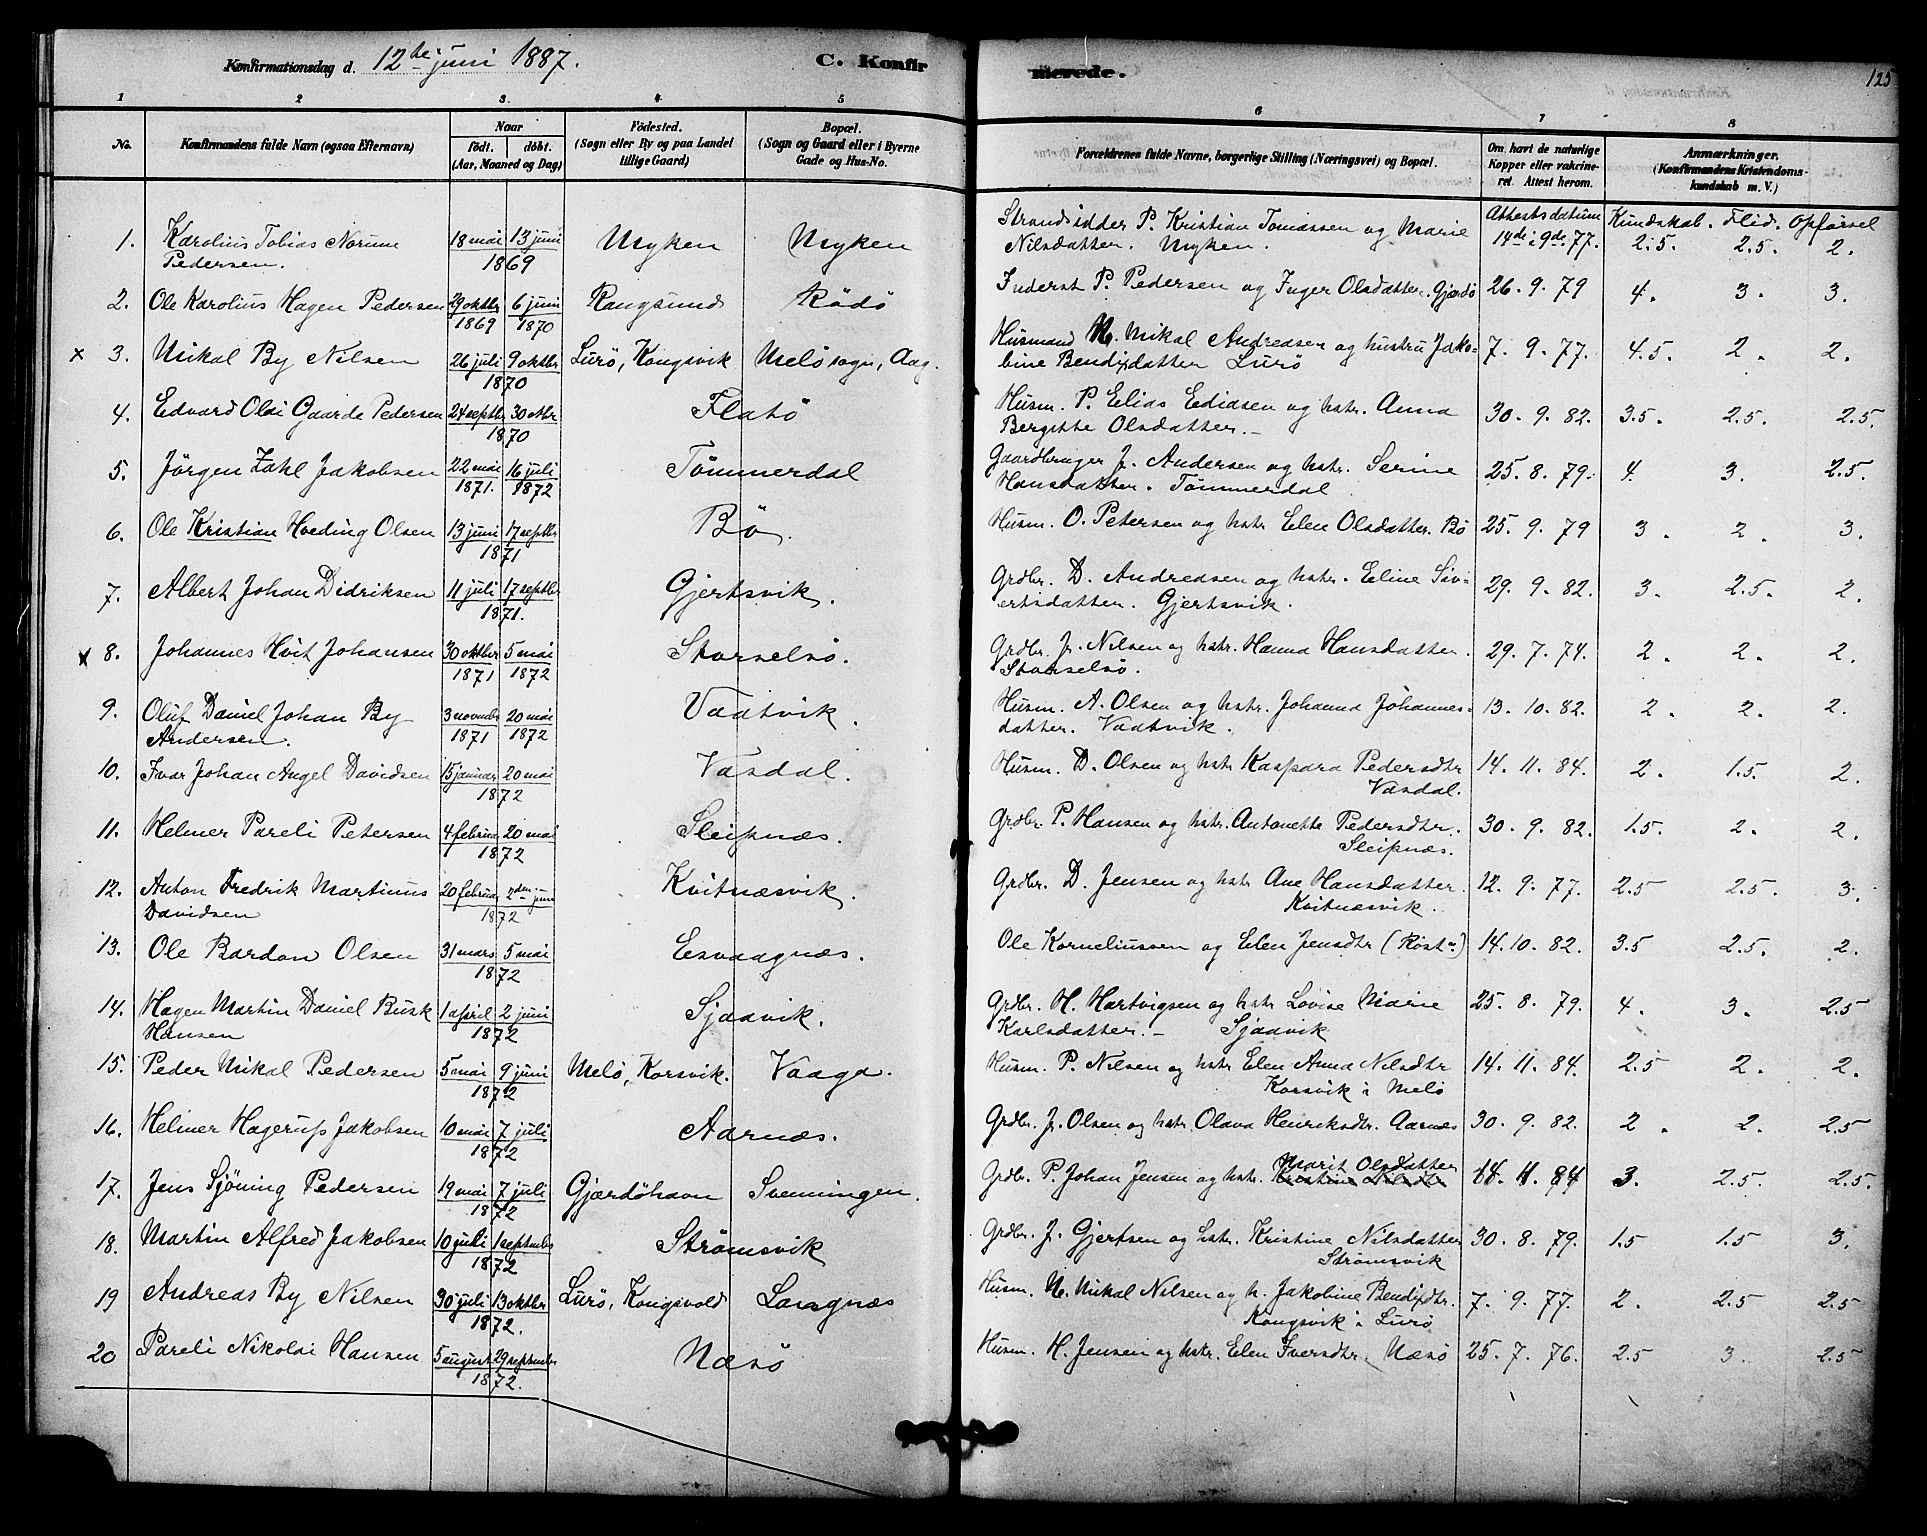 Konfirmationsdag d. 12te juni 1887. C. Konfirmerede. 125
1 2 3. 4 5 6 7 8
No. Konfirmandens fulde Navn (ogsaa Efternavn) Naar født. døbt. (Aar, Maaned og Dag) Fødested. (Sogn eller By og paa Landet tillige Gaard) Bopæl. (Sogn og Gaard eller i Byerne Gade og Hus-No. Forældrenes fulde Navne, borgerlige Stilling (Næringsvei) og Bopæl. Om havt de naturlige Kopper eller vakcineret. Attest herom. Anmærkninger. (Konfirmandens Kristendomskundskab m. V.)
Attests datum Kundskab. Flid. Opførsel
1. Karolius Tobias Norum Pedersen. 18 mai 13 juni 1869 Myken Myken Strandsidder P. Kristian Tomassen og Marie Nilsdatter. Myken. 14de i 9de 77. 2.5. 2.5. 2.
2. Ole Karolius Hagen Pedersen 29 oktbr 1869 6 juni 1870 Rangsund Rødø Inderst P. Pedersen og Inger Olsdatter. Gjærdø 26. 9. 79 4. 3. 3.
x 3. Mikal By Nilsen 26 juli 9 oktbr 1870 Lurø, Kongsvik Melø sogn, Aag. Husmand N. Mikal Andreasen og hustru Jakobine Bendixdatter Lurø 7. 9. 77. 4.5. 2. 2.
4. Edvard Olai Gaarde Pedersen 24 septbr 30 oktbr 1870 Flatø Husm. P. Elias Ediasen og hstr. Anna Bergitte Olsdatter. 30. 9. 82. 3.5. 2.5. 2.5.
5. Jørgen Zahl Jakobsen 22 mai 1871. 16 juli 1872 Tømmerdal Gaardbruger J. Andersen og hstr. Serine Hansdatter. Tømmerdal 25. 8. 79. 4. 3. 2.5.
6. Ole Kristian Hveding Olsen 13 juni 17 septbr 1871 Bø. Husm. O. Petersen og hstr Elen Olsdatter. Bø 25. 9. 79 3. 2. 3.
7. Albert Johan Didriksen 11 juli 17 septbr 1871. Gjertsvik. Grdbr. D. Andreasen og hstr. Eline Sivertsdatter. Gjertsvik. 29. 9. 82. 3. 2.5. 2.
x 8. Johannes Hvit Johansen 30 oktbr 1871 5 mai 1872 Storselsø. Grdbr. J. Nilsen og hstr. Hanna Hansdatter. Storselsø. 29. 7. 74. 2. 2. 2.
9. Oluf Daniel Johan By Andersen. 3 novmbr 1871 20 mai 1872 Vaatvik. Husm. A. Olsen og hstr. Johanna Johannesdatter. Vaatvik. 13. 10. 82. 2. 2. 2.
10. Ivar Johan Angel Davidsen 15 januar 20 mai 1872 Vasdal. Husm. D. Olsen og hstr Kaspara Pedersdtr Vasdal. 14. 11. 84. 2. 1.5. 2.
11. Helmer Pareli Petersen 4 februar 20 mai 1872 Sleipnæs. Grdbr. P. Hansen og hstr. Antonette Pedersdtr. Sleipnæs. 30. 9. 82. 1.5. 2. 2.
12. Anton Fredrik Martinus Davidsen 20 februar 2den juni 1872 Kvitnæsvik. Grdbr. D. Jensen og hstr Ane Hansdatter. Kvitnæsvik. 12. 9. 77. 2.5 2.5. 3.
13. Ole Bardon Olsen 31 mars 5 mai 1872 Esvaagnæs. Ole Korneliussen og Elen Jensdtr 14. 10. 82. 3.5 2.5. 2.
14. Hagen Martin Daniel Busk Hansen 1 april 2 juni 1872 Sjaavik. Grdbr. H. Hartvigsen og hstr Lovise Marie Karlsdatter. Sjaavik 25. 8. 79. 4. 3. 2.5
15. Peder Mikal Pedersen 5 mai 9 juni 1872 Melø, Korsvik. Vaaga. Husm. P. Nilsen og hstr Elen Anna Nilsdtr Korsvik i Melø 14. 11. 84. 2.5 2. 2.
16. Helmer Hagerup Jakobsen 10 mai 7 juli 1872 Aarnæs. Grdbr. J. Olsen og hstr. Olava Henriksdtr. Aarnæs 30. 9. 82. 2. 2. 2.5
17. Jens Sjøning Pedersen 19 mai 7 juli 1872 Gjærdøhavn Svenningen. Grdbr. P. Johan Jensen og hstr. Kristine Nilsdtr Marit Olsdatter 14. 11. 84 3. 2.5. 2.5.
18. Martin Alfred Jakobsen 10 juli 1 septmbr 1872 Strømsvik Grdbr. J. Gjertsen og hstr. Kristine Nilsdatter Strømsvik 30. 8. 79. 1.5 1.5 3.
19 Andreas By Nilsen 30 juli 13 oktbr 1872. Lurø, Kongsvold Langnæs Husm. N. Mikal Nilsen og h. Jakobine Bendixdtr. Kongsvik i Lurø 7. 9. 77. 2. 2.5 2.5
20 Pareli Nikolai Hansen 5 august 29 septmbr 1872. Næsø Husm. H. Jensen og hstr. Elen Iversdtr. Næsø 25. 7. 76. 2.5 3. 2.5